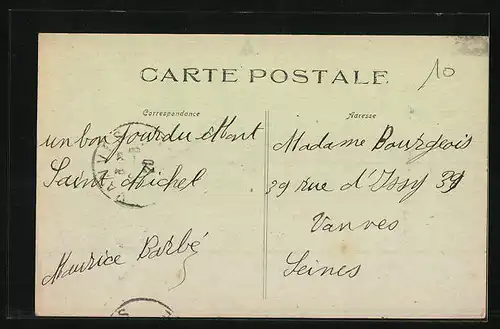 CARTE POSTALE
10
Correspondance
Adresse
un bon jour du Mont
Saint Michel
Maurice Barbé
Madame Bourgeois
39 rue d'Issy 39
Vanves
Seines